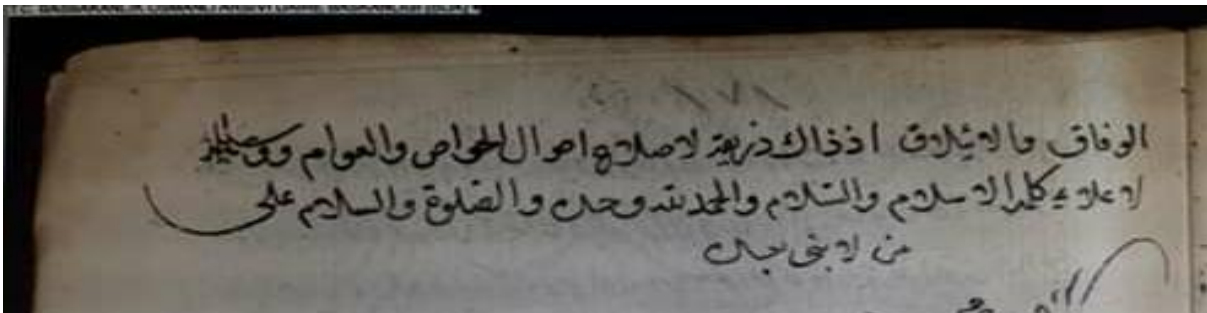 ١٧١
الوفاق والائتلاف اذ ذاك ذريعة لاصلاح احوال الخواص والعوام ووسيلة
لاعلاء كلمة الاسلام والسلام والحمد لله وحده والصلوة والسلام على
من لا نبى بعده